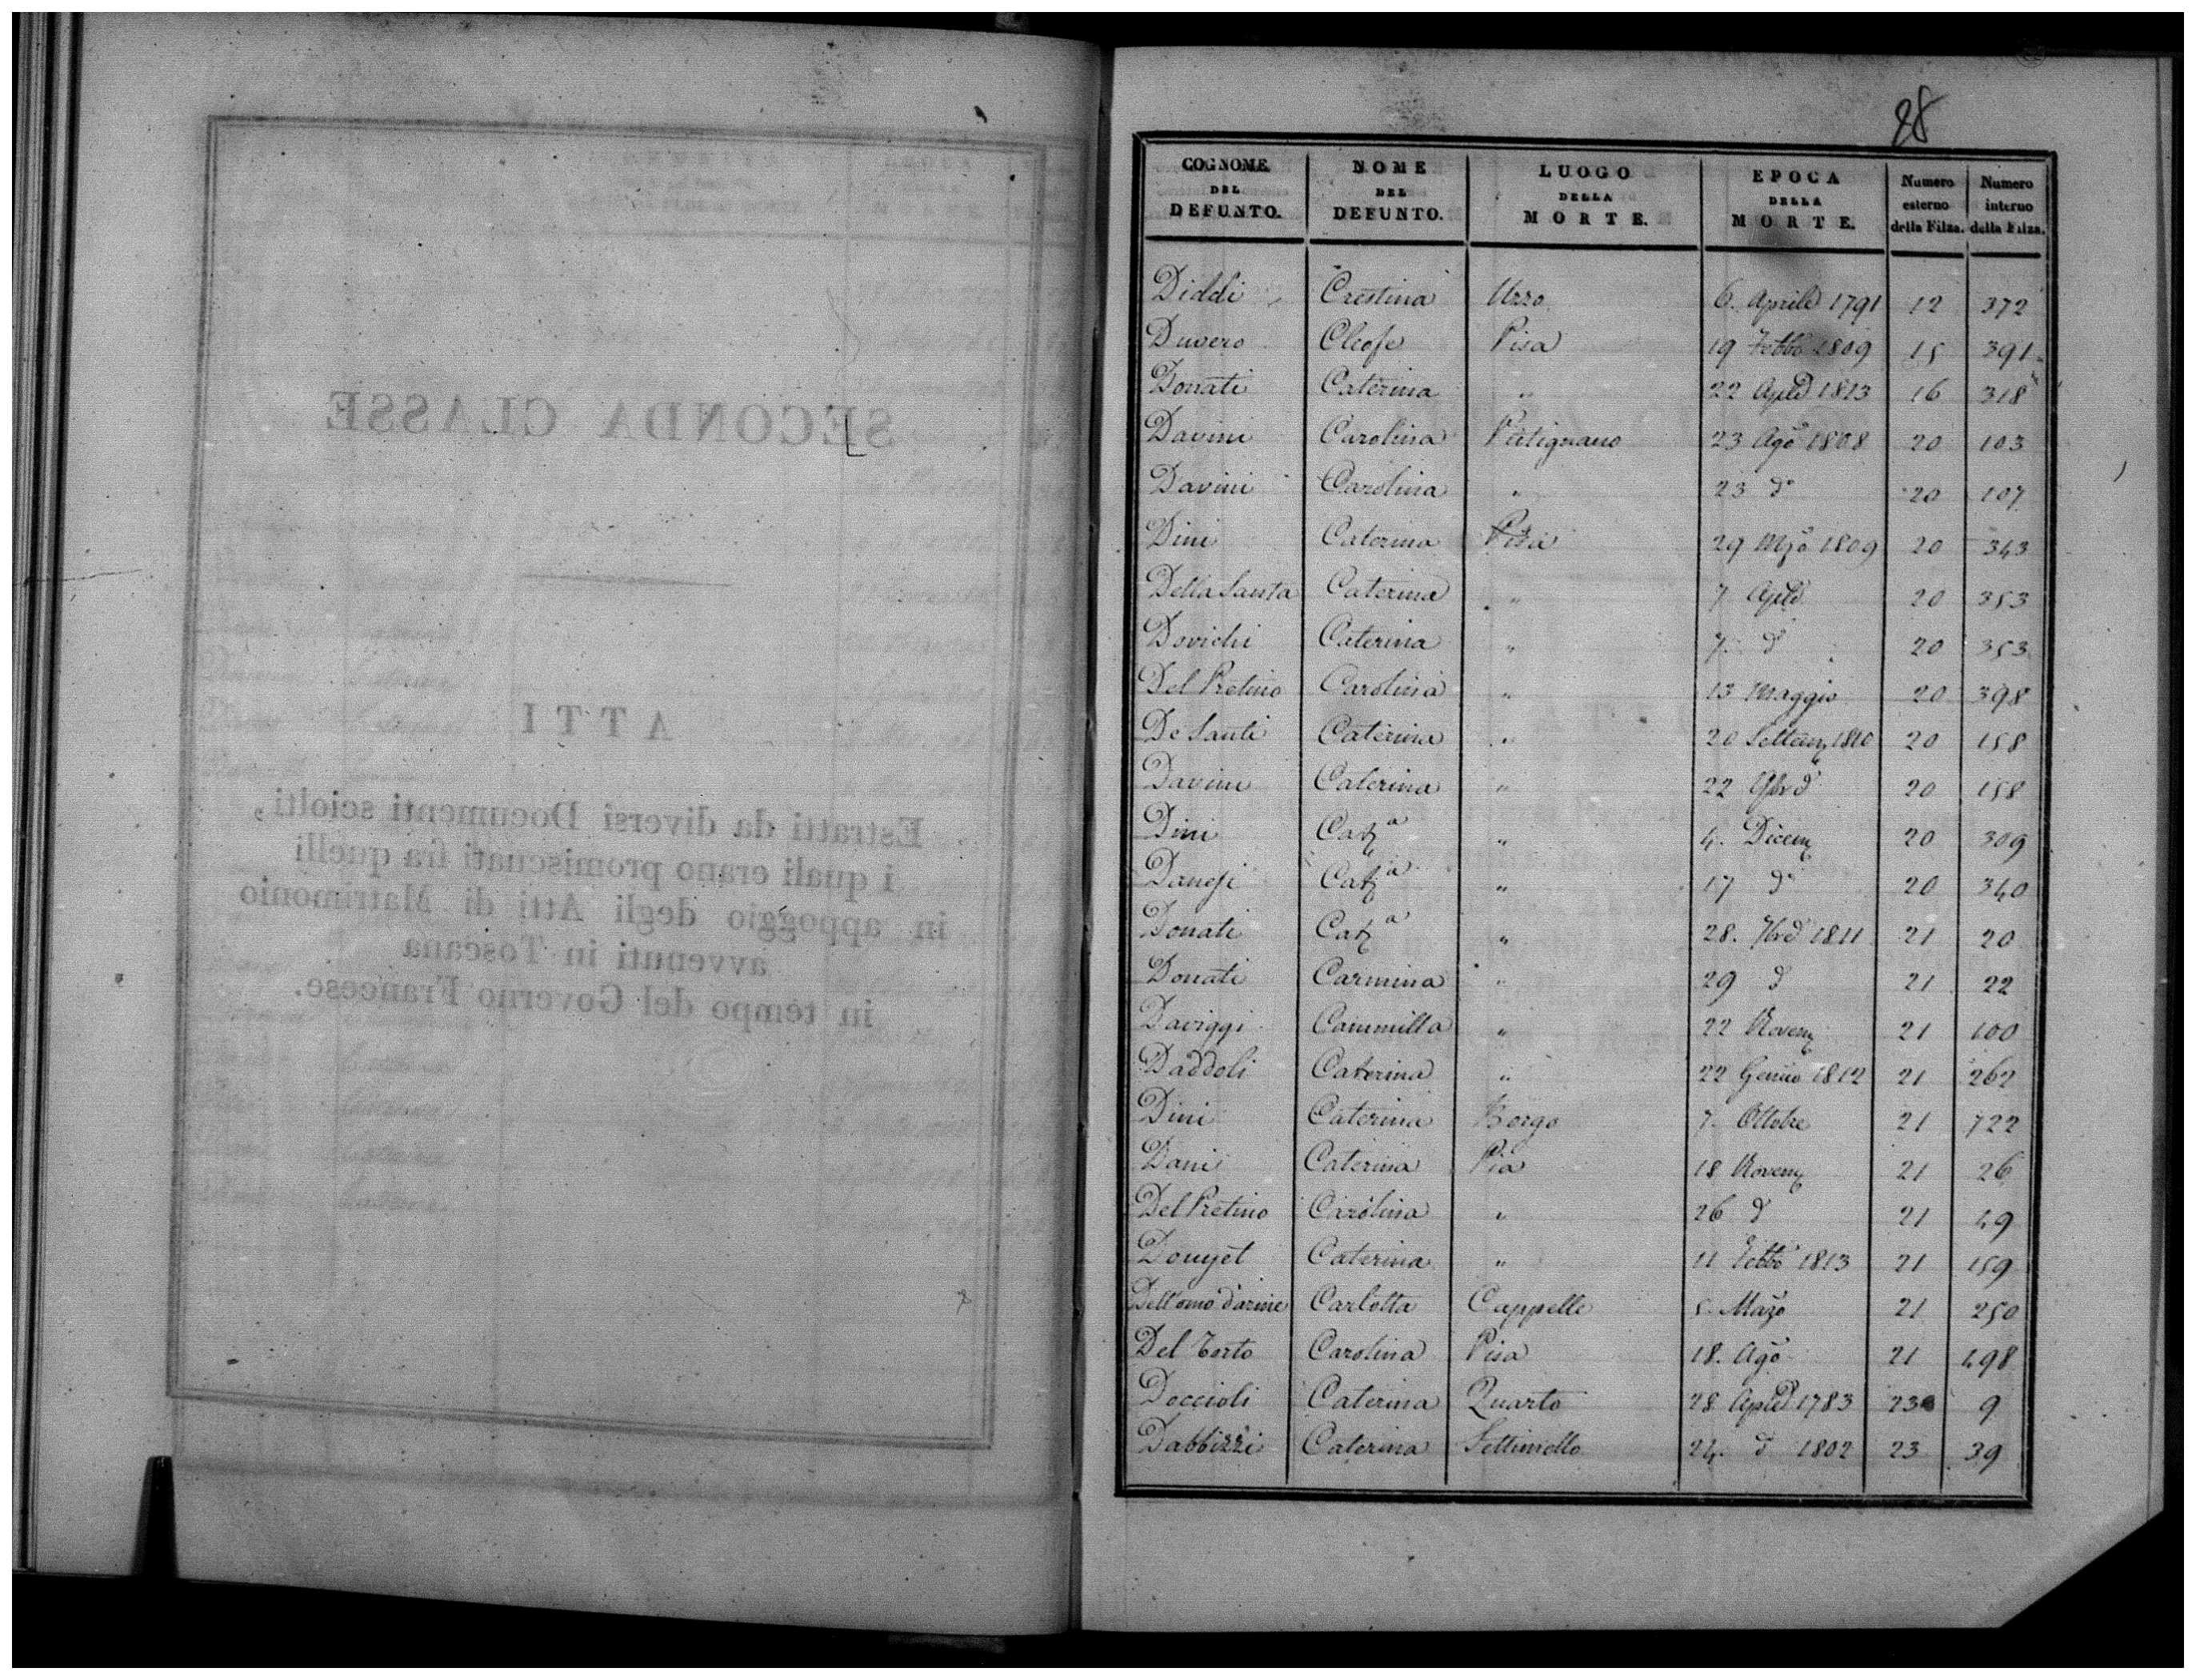 SECONDA CLASSE
ATTI
Estratti da diversi Documenti sciolti,
i quali erano promiscuati fra quelli
in appoggio degli Atti di Matrimonio
avvenuti in Toscana
in tempo del Governo Francese.
28
COGNOME DEL DEFUNTO. NOME DEL DEFUNTO. LUOGO DELLA MORTE. EPOCA DELLA MORTE. Numero esterno della Filza. Numero interno della Filza.
Diddi Crestina 6. Aprile 1791 12 372
Duvero Cleofe Pisa 19 Febbo 1809 15 391
Donati Caterina " 22 Aple 1813 16 318
Davini Carolina Putignano 23 Ago 1808 20 103
Davini Carolina " 23 do 20 107
Dini Caterina Pisa 29 Mzo 1809 20 343
Della Santa Caterina " 7 Aple 20 353
Dovichi Caterina " 7. do 20 353
Del Pretino Carolina " 13 Maggio 20 398
De Santi Caterina " 20 Settem 1810 20 158
Davini Caterina " 22 20 158
Dini Cata " 4. Dicem 20 309
Danesi Cata " 17 do 20 340
Donati Cata " 28. 7bre 1811 21 20
Donati Carmina " 29 do 21 22
Daviggi Cammilla " 22 Novem 21 100
Daddoli Caterina " 22 Genno 1812 21 262
Dini Caterina Borgo 7. Ottobre 21 722
Dani Caterina Pia 18 Novem 21 26
Del Pretino Carolina " 26 do 21 49
Douyet Caterina " 11 Febbo 1813 21 159
Dell'omo d'arme Carlotta Cappelle 5. Mazo 21 250
Del Torto Carolina Pisa 18. Ago 21 498
Doccioli Caterina Quarto 28 Aple 1783 23 9
Dabbizzi Caterina Settimello 24. do 1802 23 39